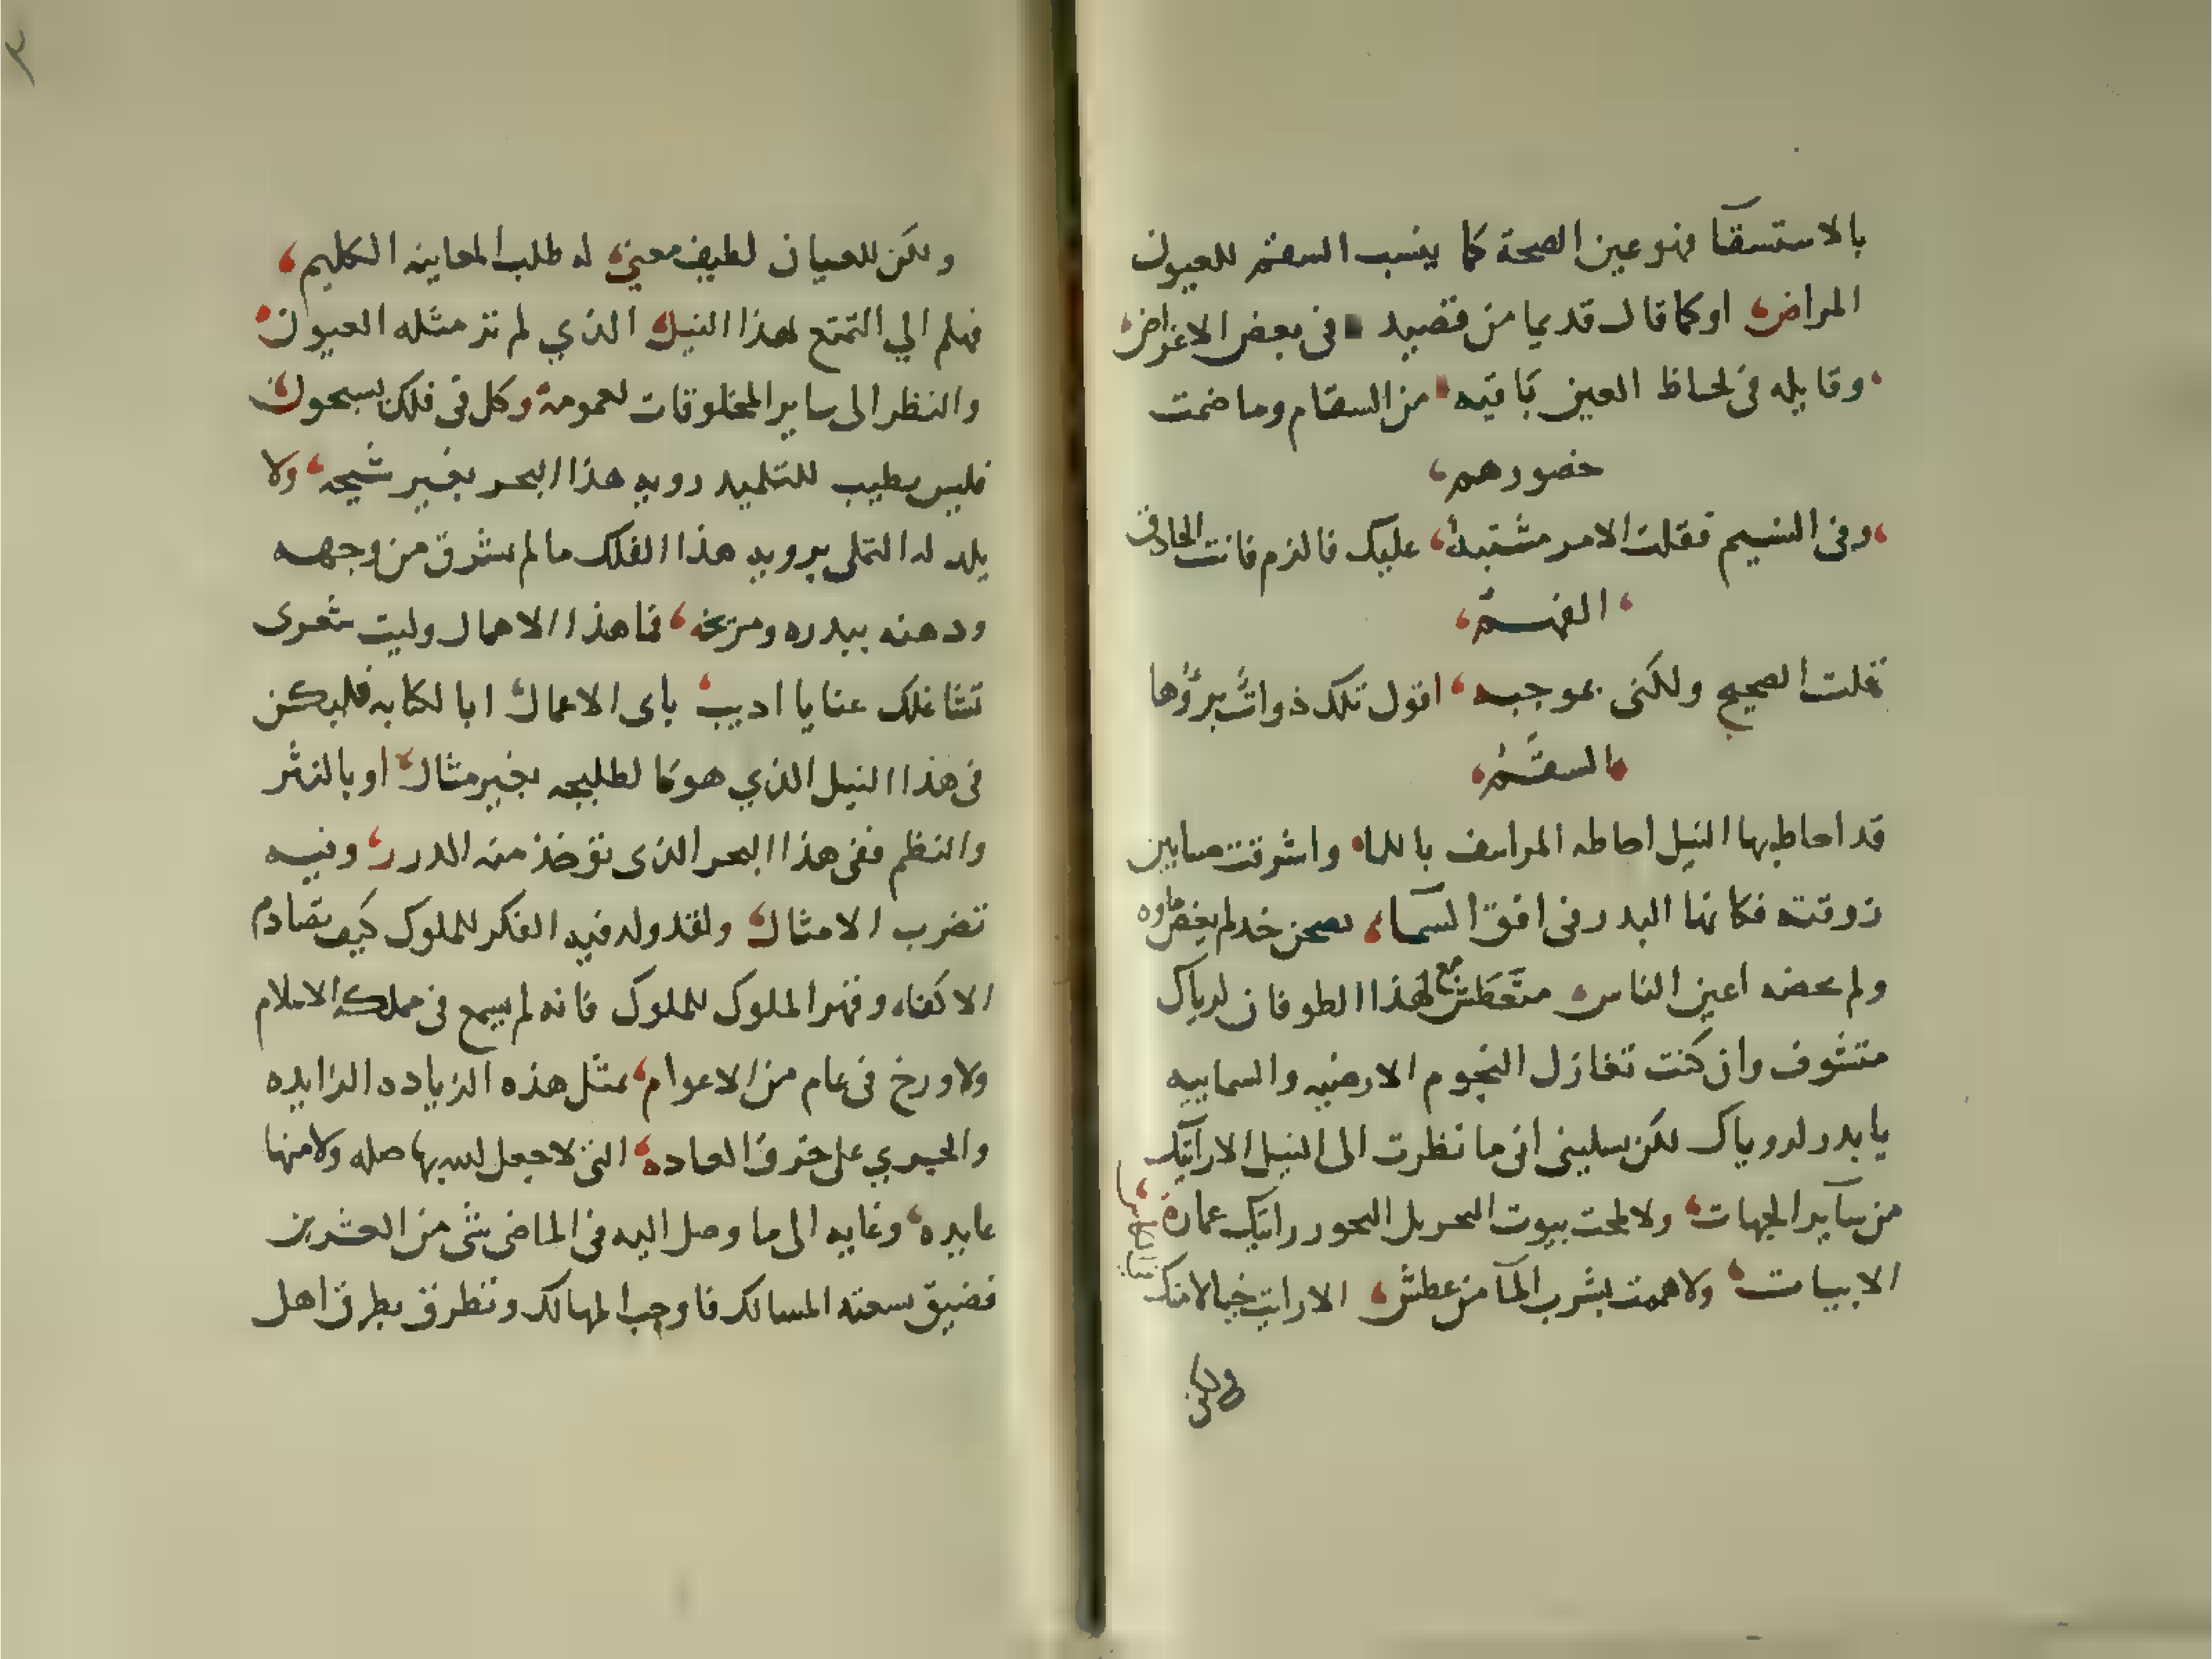 بالاستسقآ فهو عين الصحة كما ينسب السقم للعيون
المراض، او كما قال قديما من قصيد فى بعض الاغراض،
، وقايله فى لحاظ العين باقيه، من السقام وما ضمت
خصورهم،
، وفى النسيم فقلت الامر مشتبه، عليك فالزم فانت الحاذق
، الفهم،
قلت الصحيح ولكنى بموجبه، اقول تلك ذوات برؤها
، السقم،
قد احاط بها النيل احاطه المراسف باللما، واشرقت صبابين
زوقته فكانها البدر فى افق السماء، بصحن خد لم يغض ماوه
ولم تخضه اعين الناس، متعطش مع لهذا الطوفان لرياك
متشوف وان كنت تغازل النجوم الارضيه والسماييه
يا بدر لروياك لكن سلينى انى ما نظرت الى النيل الا رايتك
من سآير الجهات، ولا لمحت بيوت البحر بل البحور رايتك عمارة
الابيات، ولا هممت بشرب المآ من عطش، الا رايت خيالا منك
ولكن
ولكن للعيان لطيف معنى، له طلب المعاينه الكليم،
فهلم الي التمتع بهذا النيل، الذي لم تر مثله العيون،
والنظر الى ساير المخلوقات لعمومه، وكل فى فلك يسبحون،
فليس يطيب للتلميد رويه هذا البحر بغير شيخه، ولا
يلد له التملى برويه هذا الفلك ما لم تشرق من وجهه
ودهنه ببدره ومريخه، فما هذا الاهمال وليت شعرى
تشاغلك عنا يا اديب، باى الاعمال، ابا لكتابه فليكن
فى هذا النيل الذي هو كالطليحه بغير مثال، او بالنثر
والنظم ففى هذا البحر الذى توخذ منه الدرر، وفيه
تضرب الامثال، ولقد وله فيه الفكر للملوك كيف تصادم
الاكفاء وقهر الملوك للملوك فانه لم يسمع فى مملكة الاسلام
ولا ورخ فى عام من الاعوام، بمثل هذه الزياده الزايده
والجري على خرق العاده، التى لا جعل لله بها صله ولا منها
عايده، وغايه الى ما وصل اليه فى الماضى شى من العشرين
فضيق سعته المسالك فاوجب المهالك وتطرق بطرق اهل